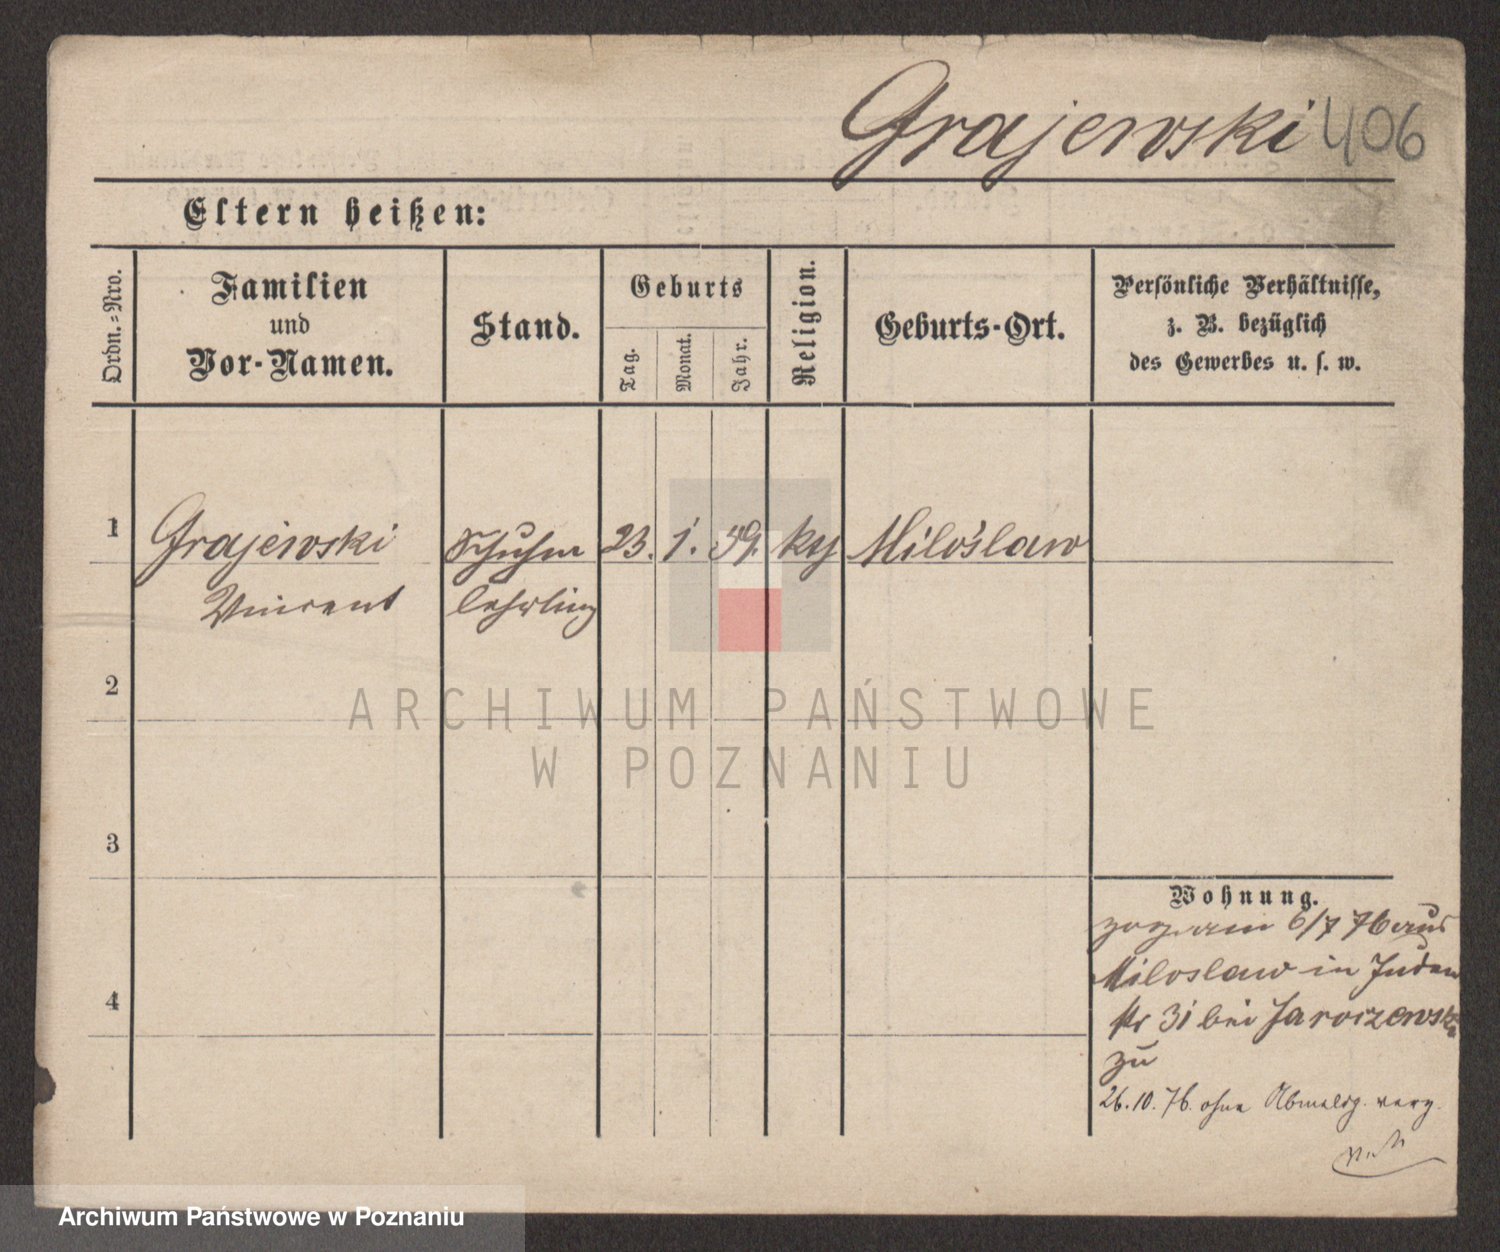 Grajewski 406
Eltern heißen:
Ordn.-Nro.
Familien
und
Vor-Namen.
Stand.
Geburts
Tag.
Monat.
Jahr.
Religion.
Geburts-Ort.
Persönliche Verhältnisse,
z. B. bezüglich
des Gewerbes u. s. w.
1 Grajewski Schuhm 23. 1. 59. kty Miloslaw
Vincent lehrling
2
ARCHIWUM PAŃSTWOWE
W POZNANIU
3
4
Wohnung.
zog am 6/7 76 aus
Miloslaw in Juden
str 31 bei Jaroszewski
zu
26.10.76. ohne Abmeldg. verz.
Archiwum Państwowe w Poznaniu